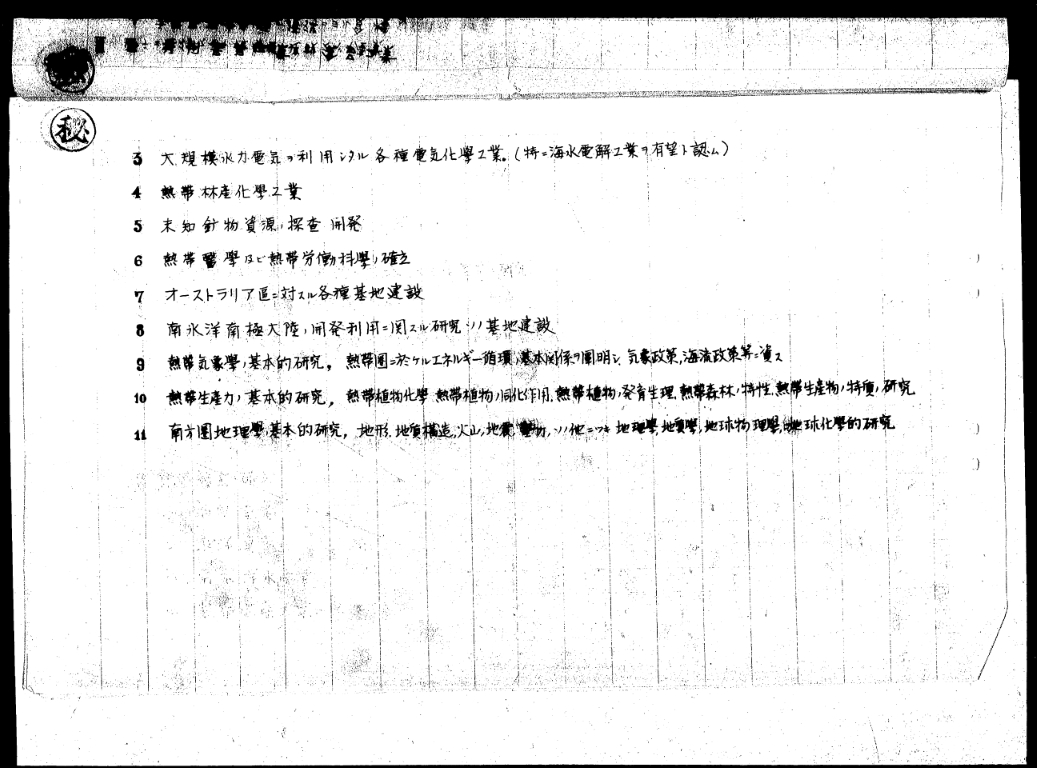 秘
3 大規模水力電気ヲ利用シタル各種電気化學工業。(特ニ海水電解工業ヲ有望ト認ム)
4 熱帯林産化學工業
5 未知鉱物資源ノ探査開発
6 熱帯醫學及ビ熱帯労働科學ノ確立
7 オーストラリア區ニ対スル各種基地建設
8 南氷洋南極大陸ノ開発利用ニ関スル研究ソノ基地建設
9 熱帯気象學ノ基本的研究。熱帯圏ニ於ケルエネルギー循環ノ基本関係ヲ闡明シ、気象政策、海流政策等ニ資ス
10 熱帯生産力ノ基本的研究。熱帯植物化學、熱帯植物ノ同化作用、熱帯植物ノ発育生理、熱帯森林ノ特性、熱帯生産物ノ特質ノ研究
11 南方圏地理學ノ基本的研究。地形、地質構造、火山、地震、ソノ他ニツキ地理學、地質學、地球物理學、地球化學的研究